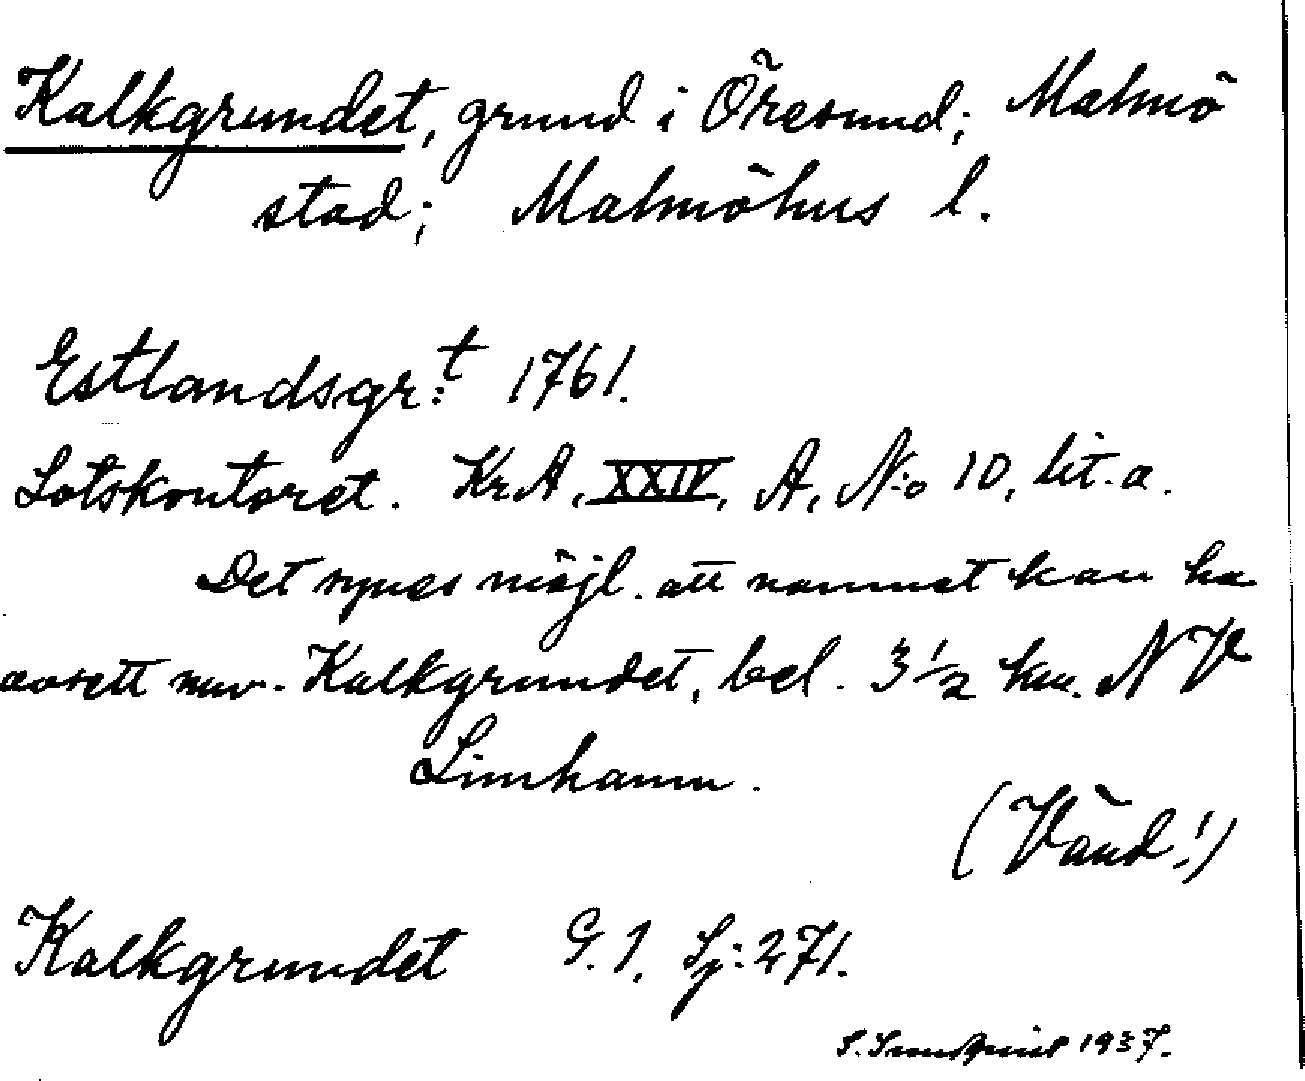 Kalkgrundet, grund i Öresund; Malmö
stad; Malmöhus l.
Estlandsgr:t 1761.
Lotskontoret. KrA, XXIV, A, N:o 10, lit. a.
Det synes möjl. att namnet kan ha
avsett nuv. Kalkgrundet, bel. 3 1/2 km. NV
Limhamn.
(Vänd!)
Kalkgrundet G. 1. Sj: 271.
S. 1937.